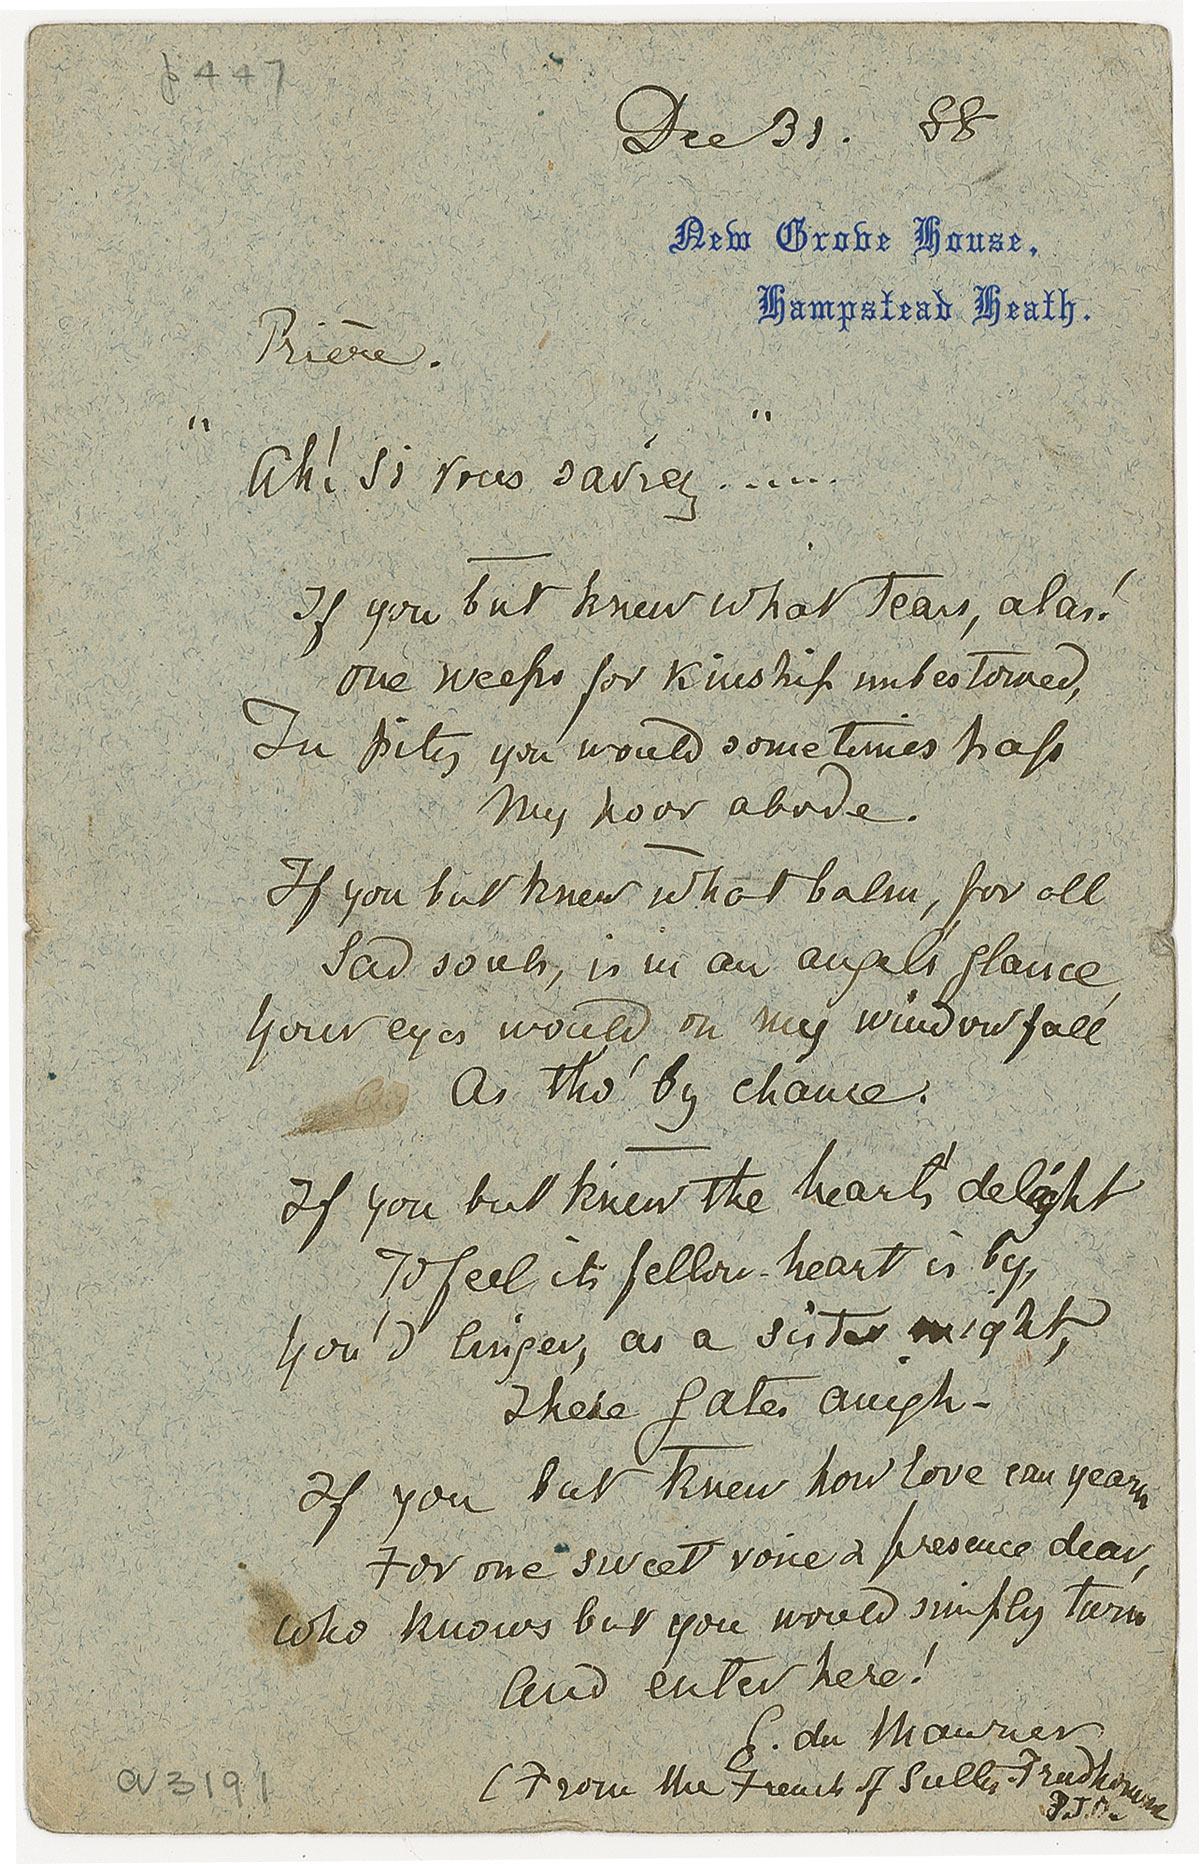 p447
Dec 31. 88
New Grove House,
Hampstead Heath.
Prière.
"Ah! Si vous saviez ......"
If you but knew what tears, alas!
one weeps for kinship unbestowed,
In pity you would sometimes pass
My poor abode.
If you but knew what balm, for all
Sad souls, is in an angel's glance,
Your eyes would on my window fall
As tho' by chance.
If you but knew the heart's delight
To feel its fellow-heart is by,
You'd linger, as a sister might,
These gates anigh -
If you but knew how love can yearn
For one sweet voice & presence dear,
Who knows but you would simply turn
And enter here!
G. du Maurier
(From the French of Sully-Prudhomme
P.T.O.
av3191